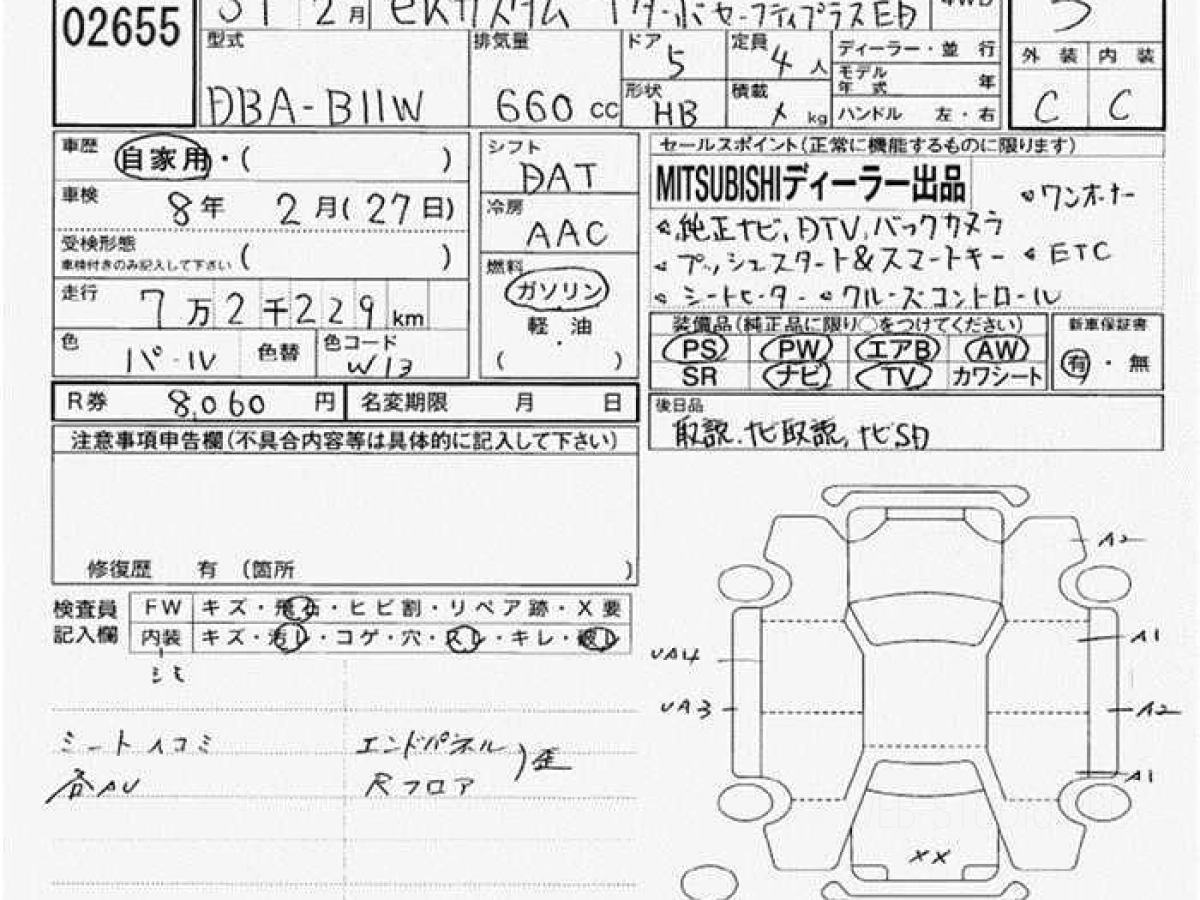 02655
2月 eKカスタム Tターボセーフティプラス ED
型式 DBA-B11W
排気量 660 cc
ドア 5
定員 4 人
形状 HB
積載 kg
ディーラー・並 行
モデル年式 年
ハンドル 左・右
外 装 内 装
C C
車歴 自家用・( )
車検 8年 2月(27日)
受検形態
車検付きのみ記入して下さい ( )
走行 7万2千229km
色 パール 色替 色コード W13
シフト DAT
冷房 AAC
燃料
ガソリン
・
軽 油
( )
セールスポイント(正常に機能するものに限ります)
MITSUBISHIディーラー出品 ワンオーナー
純正ナビ, DTV, バックカメラ
プッシュスタート&スマートキー ETC
シートヒーター クルーズコントロール
装備品(純正品に限り○をつけてください)
PS PW エアB AW
SR ナビ TV カワシート
新車保証書
有・無
R券 8,060 円 名変期限 月 日
後日品
取説, ナビ取説, ナビSD
注意事項申告欄(不具合内容等は具体的に記入して下さい)
修復歴 有 (箇所 )
検査員記入欄
FW キズ・飛石・ヒビ割・リペア跡・X要
内装 キズ・汚レ・コゲ・穴・スレ・キレ・破レ
シミ
シートヘコミ
各AU
エンドパネル
Rフロア
歪
A2
A1
UA4
UA3
A2
A1
XX